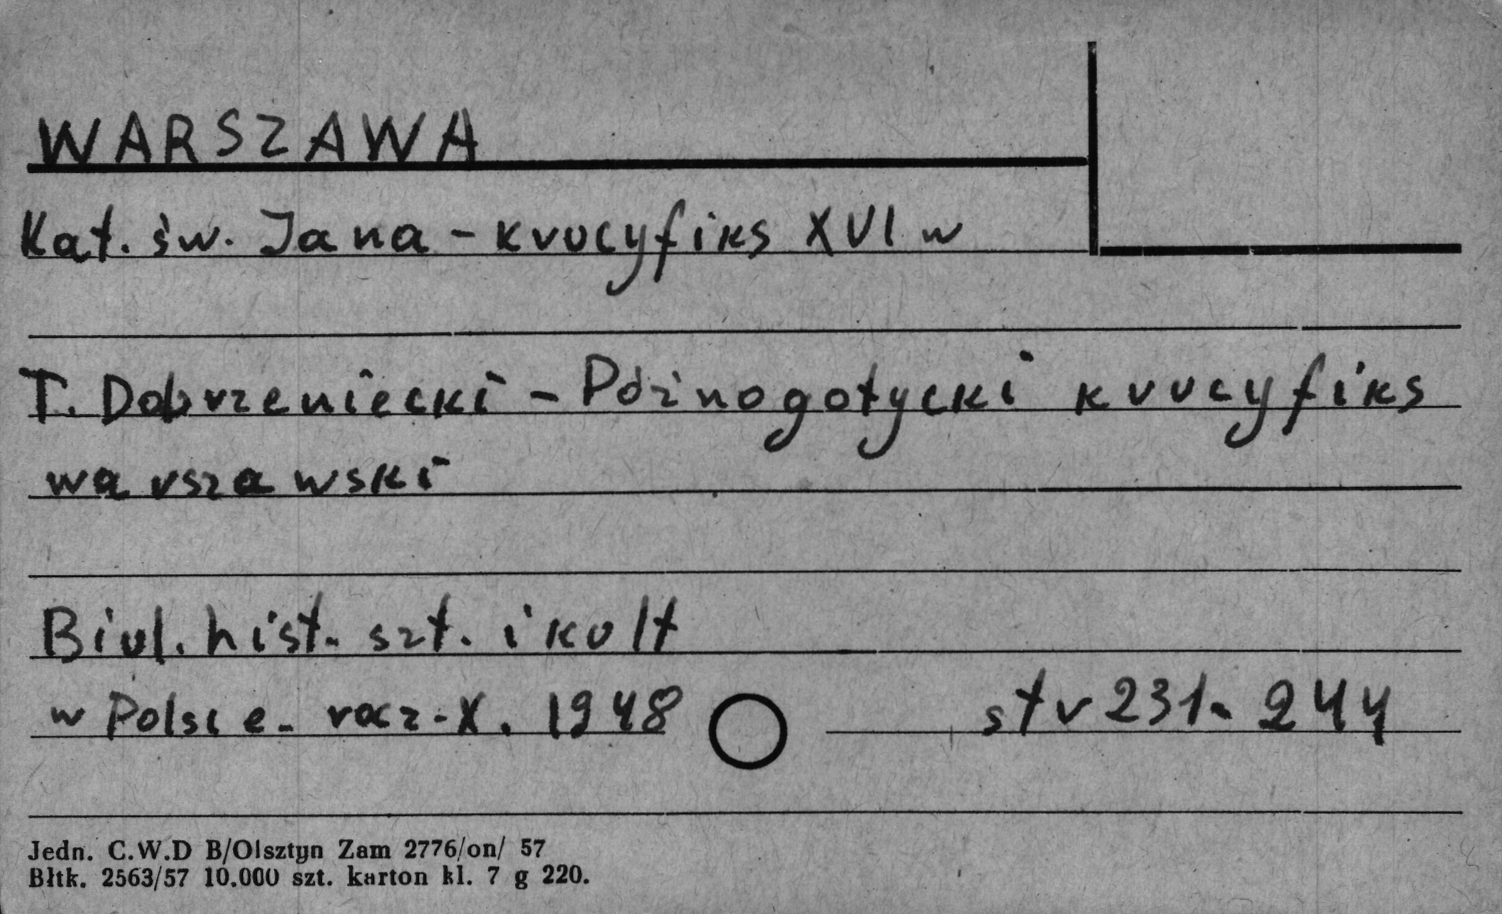 WARSZAWA
Kat. św. Jana - krucyfiks XVI w
T. Dobrzeniecki - Późnogotycki krucyfiks
warszawski
Biul. hist. szt. i kult
w Polsce. rocz. X. 1948 str 231-244
Jedn. C.W.D B/Olsztyn Zam 2776/on/ 57
Błtk. 2563/57 10.000 szt. karton kl. 7 g 220.